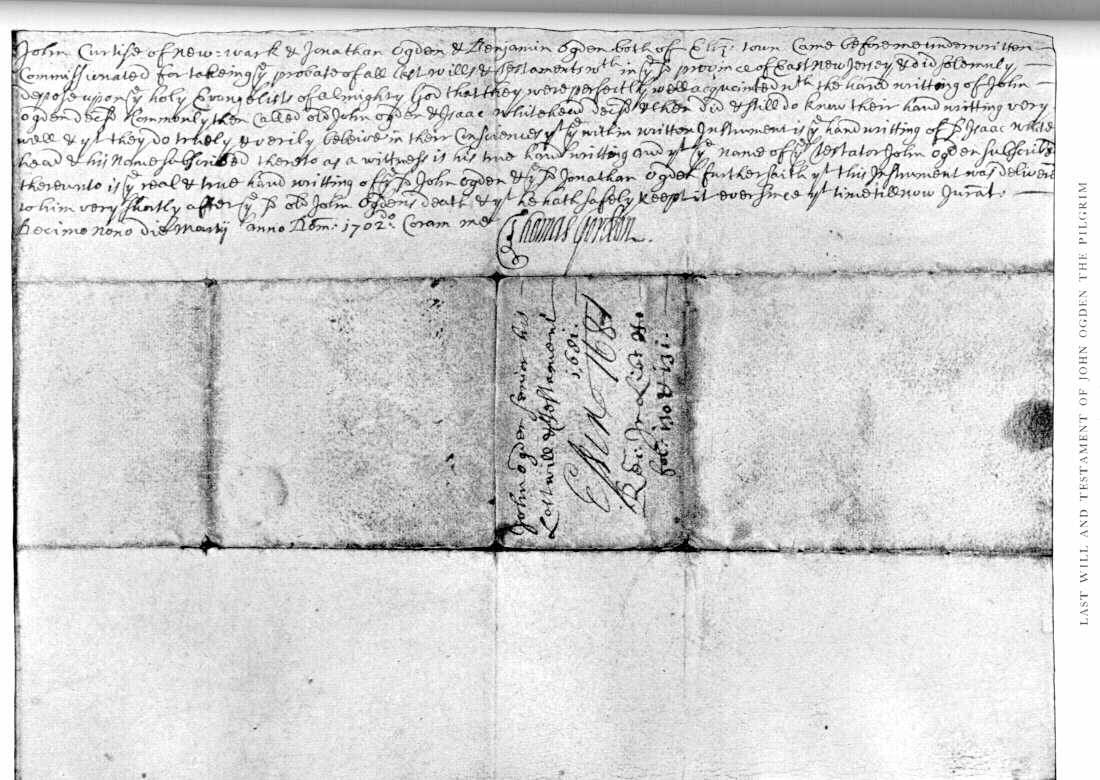 John Curtise of New:wark & Jonathan Ogden & Benjamin Ogden both of Eliz: town Came before me underwritten
Commissionated for takeing yͤ probate of all last wills & testaments wᵗʰ in yͤ sᵈ province of East New Jersey & did solemnly
depose upon yͤ holy Evangelists of almighty God that they were perfectly well acquainted wᵗʰ the hand writting of John
Ogden decsᵈ & Commonly then Called old John Ogden & Isaac Whitehead decsᵈ & then did & still do know their hand writting very
well & yᵗ they do truely & verily beleive in their Consciences yᵗ yͤ within written Instrument is yͤ hand writting of sᵈ Isaac White
head & his Name subscribed thereto as a wittness is his true hand writting and yᵗ yͤ name of yͤ testator John Ogden subscribed
thereunto is yͤ real & true hand writting of yͤ sᵈ John Ogden & yͤ sᵈ Jonathan Ogden further saith yᵗ this Instrument was delivered
to him very shortly after yͤ sᵈ old John Ogdens death & yᵗ he hath safely keept it ever since yᵗ time till now Jurat:
Decimo nono die Martij anno Dom: 1702 Coram me
Thomas Gordon
John Ogden senior his
Last will & Testament
1681:
1684
Rec: In Lib:
fol: 130 & 131:
LAST WILL AND TESTAMENT OF JOHN OGDEN THE PILGRIM